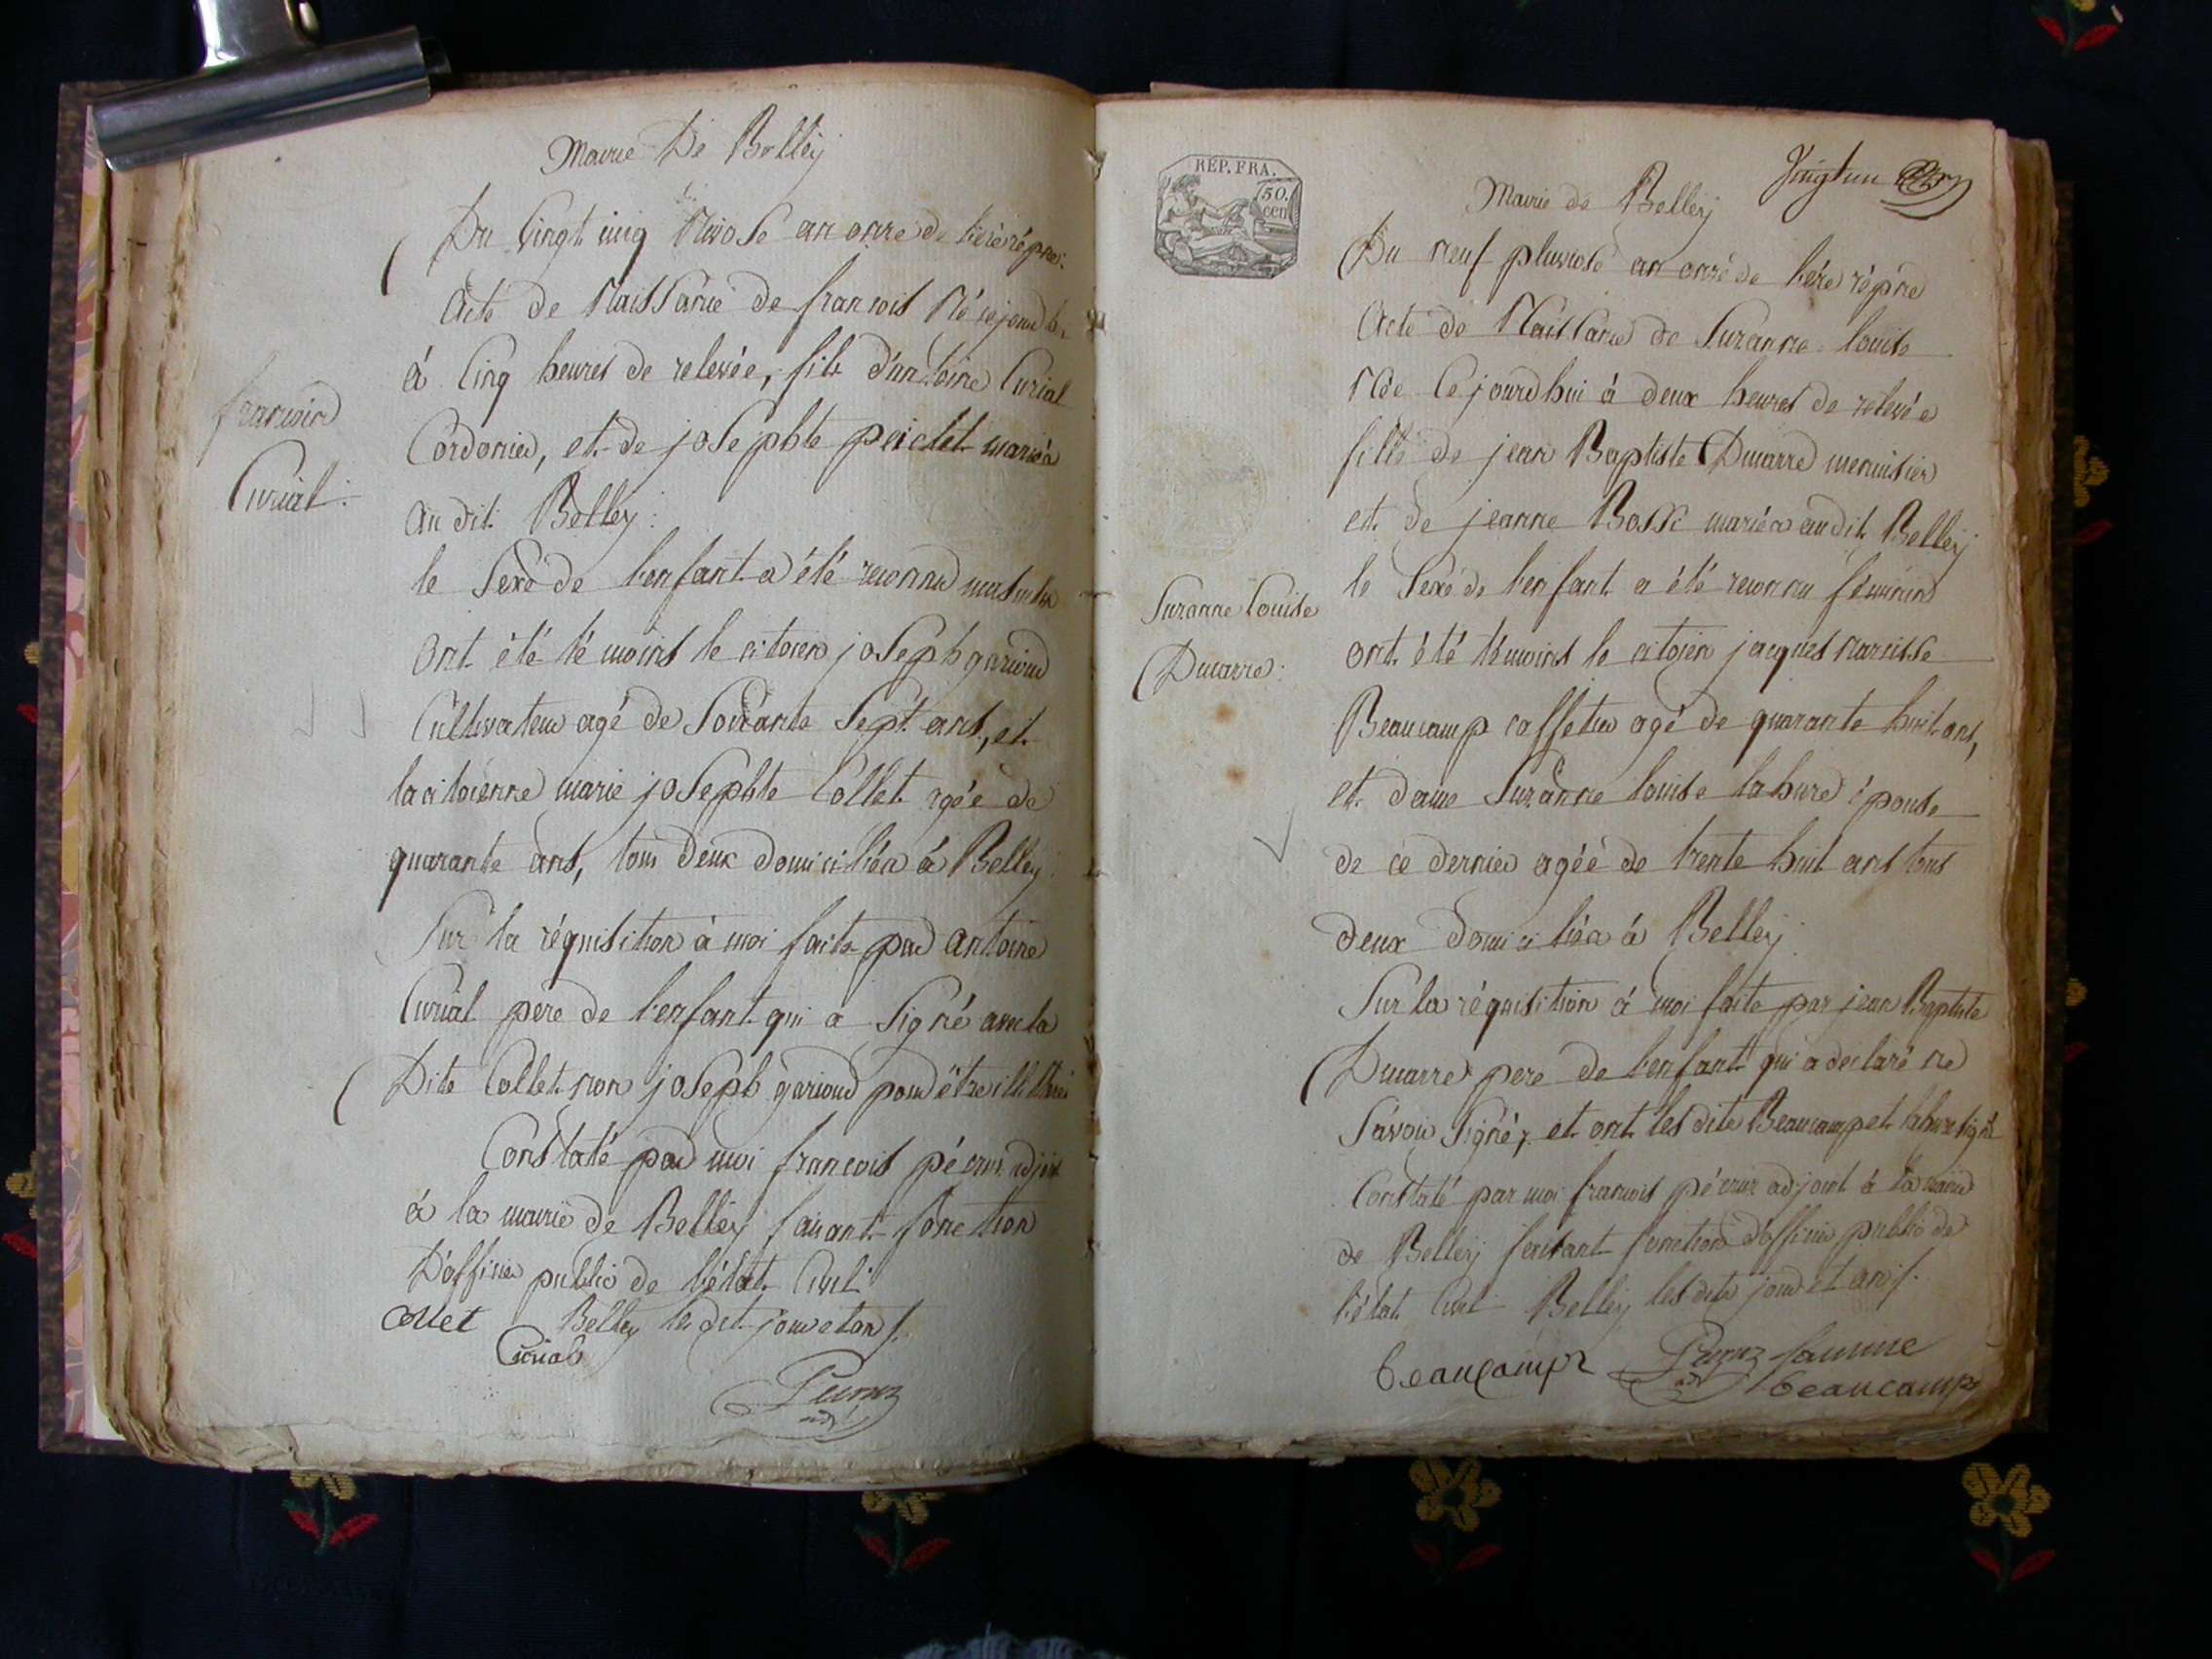 Mairie De Belley
Du vingt cinq Nivose an onze de l'ère répne.
Acte de Naissance de francois Né cejourdh.
à Cinq heures de relevée, fils d'antoine Curial
Cordonier, et de josephte peictet mariés
au dit Belley :
le Sexe de l'enfant a été reconnu masculin
ont été témoins le citoien joseph garioud
Cultivateur agé de Soixante Sept ans, et
la citoienne marie josephte Collet agée de
quarante ans, tous deux domiciliés à Belley.
Sur la réquisition à moi faite par antoine
Curial pere de l'enfant qui a Signé avec la
Dite Collet non joseph garioud pour être illitéré
Constaté par moi francois adjoint
à la mairie de Belley faisant fonction
D'officier public de l'état Civil
Belley les dit jour et an /.
Collet
Curial
francois
Curial :
REP. FRA.
50.
cen
Mairie de Belley
Du neuf pluviose an onze de l'ère répne
Acte de Naissance de Suzanne louise
Née Cejourdhui à deux heures de relevée
fille de jean Baptiste Ducarre menuisier
et de jeanne mariés audit Belley
le Sexe de l'enfant a été reconnu féminin
ont été témoins le citoien jacques narcisse
Beaucamp caffetier agé de quarante huit ans,
et dame Suzanne louise lahure épouse
de ce dernier agée de trente huit ans tous
deux domiciliés à Belley.
Sur la réquisition à moi faite par jean Baptiste
Ducarre pere de l'enfant qui a déclaré ne
Savoir Signer, et ont les dits Beaucamp et lahure signé
Constaté par moi francois adjoint à la mairie
de Belley faisant fonction d'officier public de
l'état Civil Belley les dits jour et an /.
Beaucamp
beaucamp
Suzanne Louise
Ducarre :